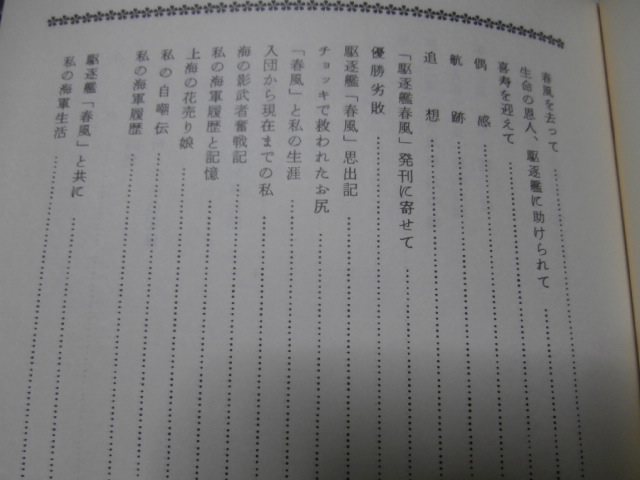 春風を去って
生命の恩人、駆逐艦に助けられて
喜寿を迎えて
偶感
航跡
追想
「駆逐艦春風」発刊に寄せて
優勝劣敗
駆逐艦「春風」思出記
チョッキで救われたお尻
「春風」と私の生涯
入団から現在までの私
海の影武者奮戦記
私の海軍履歴と記憶
上海の花売り娘
私の自嘲伝
私の海軍履歴
駆逐艦「春風」と共に
私の海軍生活